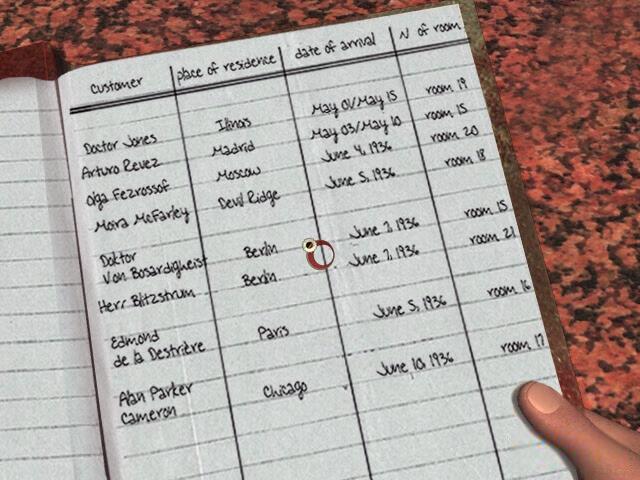 customer place of residence date of arrival N of room
Doctor Jones Ilinois May 01/May 15 room 19
Arturo Revez Madrid May 03/May 10 room 15
Olga Fezrossof Moscow June 4, 1936 room 20
Moira McFarley Devil Ridge June 5, 1936 room 18
Doktor
Von Bosardigheist Berlin June 7, 1936 room 15
Herr Blitzstrum Berlin June 7, 1936 room 21
Edmond
de la Destrière Paris June 5, 1936 room 16
Alan Parker
Cameron Chicago June 10, 1936 room 17